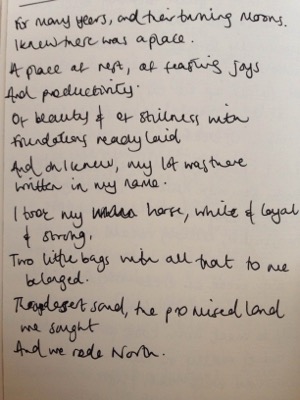 For many years, and their turning moons.
I knew there was a place.
A place of rest, of feasting joys
And productivity.
Of beauty & of stillness with
Foundations ready laid
And oh I knew, my lot was there
written in my name.
I took my horse, white & loyal
& strong,
Two little bags with all that to me
belonged.
desert sand, the promised land
we sought
And we rode North.